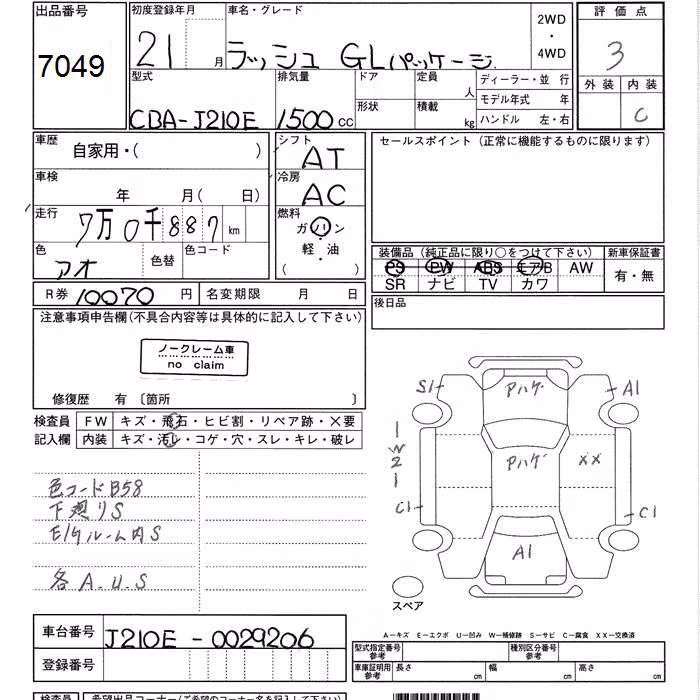 出品番号 初度登録年月 車名・グレード 2WD・4WD 評価点
7049 21 月 ラッシュ GLパッケージ 3
型式 排気量 ドア 定員 人 ディーラー・並 行 外装 内装
形状 積載 kg モデル年式 年
CBA-J210E 1500 cc ハンドル 左・右 C
車歴 自家用・( ) シフト AT セールスポイント (正常に機能するものに限ります)
車検 年 月(日) 冷房 AC
走行 7万0千887 km 燃料 ガソリン
軽・油
( )
色 アオ 色替 色コード 装備品 (純正品に限り○をつけて下さい) 新車保証書
PS PW ABS エアB AW 有・無
SR ナビ TV カワ
R券 10070 円 名変期限 月 日 後日品
注意事項申告欄(不具合内容等は具体的に記入して下さい)
ノークレーム車
no claim
修復歴 有 〔箇所 〕
検査員 FW キズ・飛石・ヒビ割・リペア跡・×要
記入欄 内装 キズ・汚レ・コゲ・穴・スレ・キレ・破レ
色コードB58
下廻りS
E/gルーム内S
各A.U.S
S1 Pハゲ A1
1
W2 Pハゲ XX
1
C1 C1
A1
スペア
車台番号 J210E-0029206
登録番号
A—キズ E—エクボ U—凹み W—補修跡 S—サビ C—腐食 XX—交換済
型式指定番号 参考 種別区分番号 参考
車庫証明用 参考 長さ cm 幅 cm 高さ cm
検査員 希望出品コーナー(ご希望のコーナー名を記入下さい)